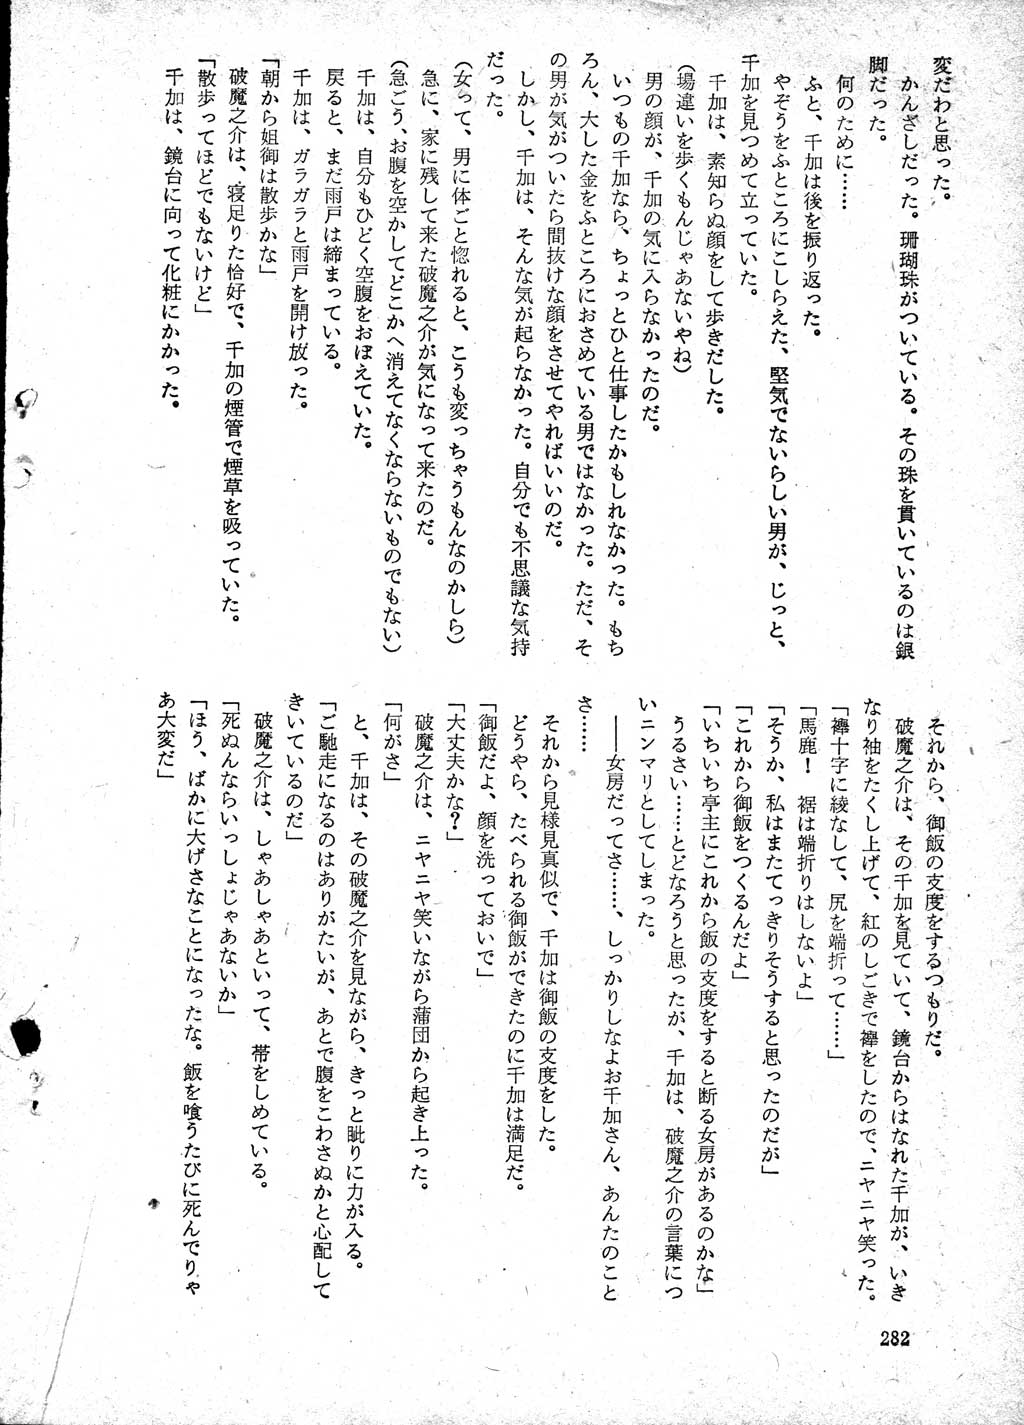 変だわと思った。
　かんざしだった。珊瑚珠がついている。その珠を貫いているのは銀
脚だった。
　何のために……
　ふと、千加は後を振り返った。
　やぞうをふところにこしらえた、堅気でないらしい男が、じっと、
千加を見つめて立っていた。
　千加は、素知らぬ顔をして歩きだした。
（場違いを歩くもんじゃあないやね）
　男の顔が、千加の気に入らなかったのだ。
　いつもの千加なら、ちょっとひと仕事したかもしれなかった。もち
ろん、大した金をふところにおさめている男ではなかった。ただ、そ
の男が気がついたら間抜けな顔をさせてやればいいのだ。
　しかし、千加は、そんな気が起らなかった。自分でも不思議な気持
だった。
（女って、男に体ごと惚れると、こうも変っちゃうもんなのかしら）
　急に、家に残して来た破魔之介が気になって来たのだ。
（急ごう、お腹を空かしてどこかへ消えてなくならないものでもない）
　千加は、自分もひどく空腹をおぼえていた。
　戻ると、まだ雨戸は締まっている。
　千加は、ガラガラと雨戸を開け放った。
「朝から姐御は散歩かな」
　破魔之介は、寝足りた恰好で、千加の煙管で煙草を吸っていた。
「散歩ってほどでもないけど」
　千加は、鏡台に向って化粧にかかった。
　それから、御飯の支度をするつもりだ。
　破魔之介は、その千加を見ていて、鏡台からはなれた千加が、いき
なり袖をたくし上げて、紅のしごきで襷をしたので、ニヤニヤ笑った。
「襷十字に綾なして、尻を端折って……」
「馬鹿！　裾は端折りはしないよ」
「そうか、私はまたてっきりそうすると思ったのだが」
「これから御飯をつくるんだよ」
「いちいち亭主にこれから飯の支度をすると断る女房があるのかな」
　うるさい……とどなろうと思ったが、千加は、破魔之介の言葉につ
いニンマリとしてしまった。
　――女房だってさ……、しっかりしなよお千加さん、あんたのこと
さ……
　それから見様見真似で、千加は御飯の支度をした。
　どうやら、たべられる御飯ができたのに千加は満足だ。
「御飯だよ、顔を洗っておいで」
「大丈夫かな？」
　破魔之介は、ニヤニヤ笑いながら蒲団から起き上った。
「何がさ」
　と、千加は、その破魔之介を見ながら、きっと眦りに力が入る。
「ご馳走になるのはありがたいが、あとで腹をこわさぬかと心配して
きいているのだ」
　破魔之介は、しゃあしゃあといって、帯をしめている。
「死ぬんならいっしょじゃあないか」
「ほう、ばかに大げさなことになったな。飯を喰うたびに死んでりゃ
あ大変だ」
282